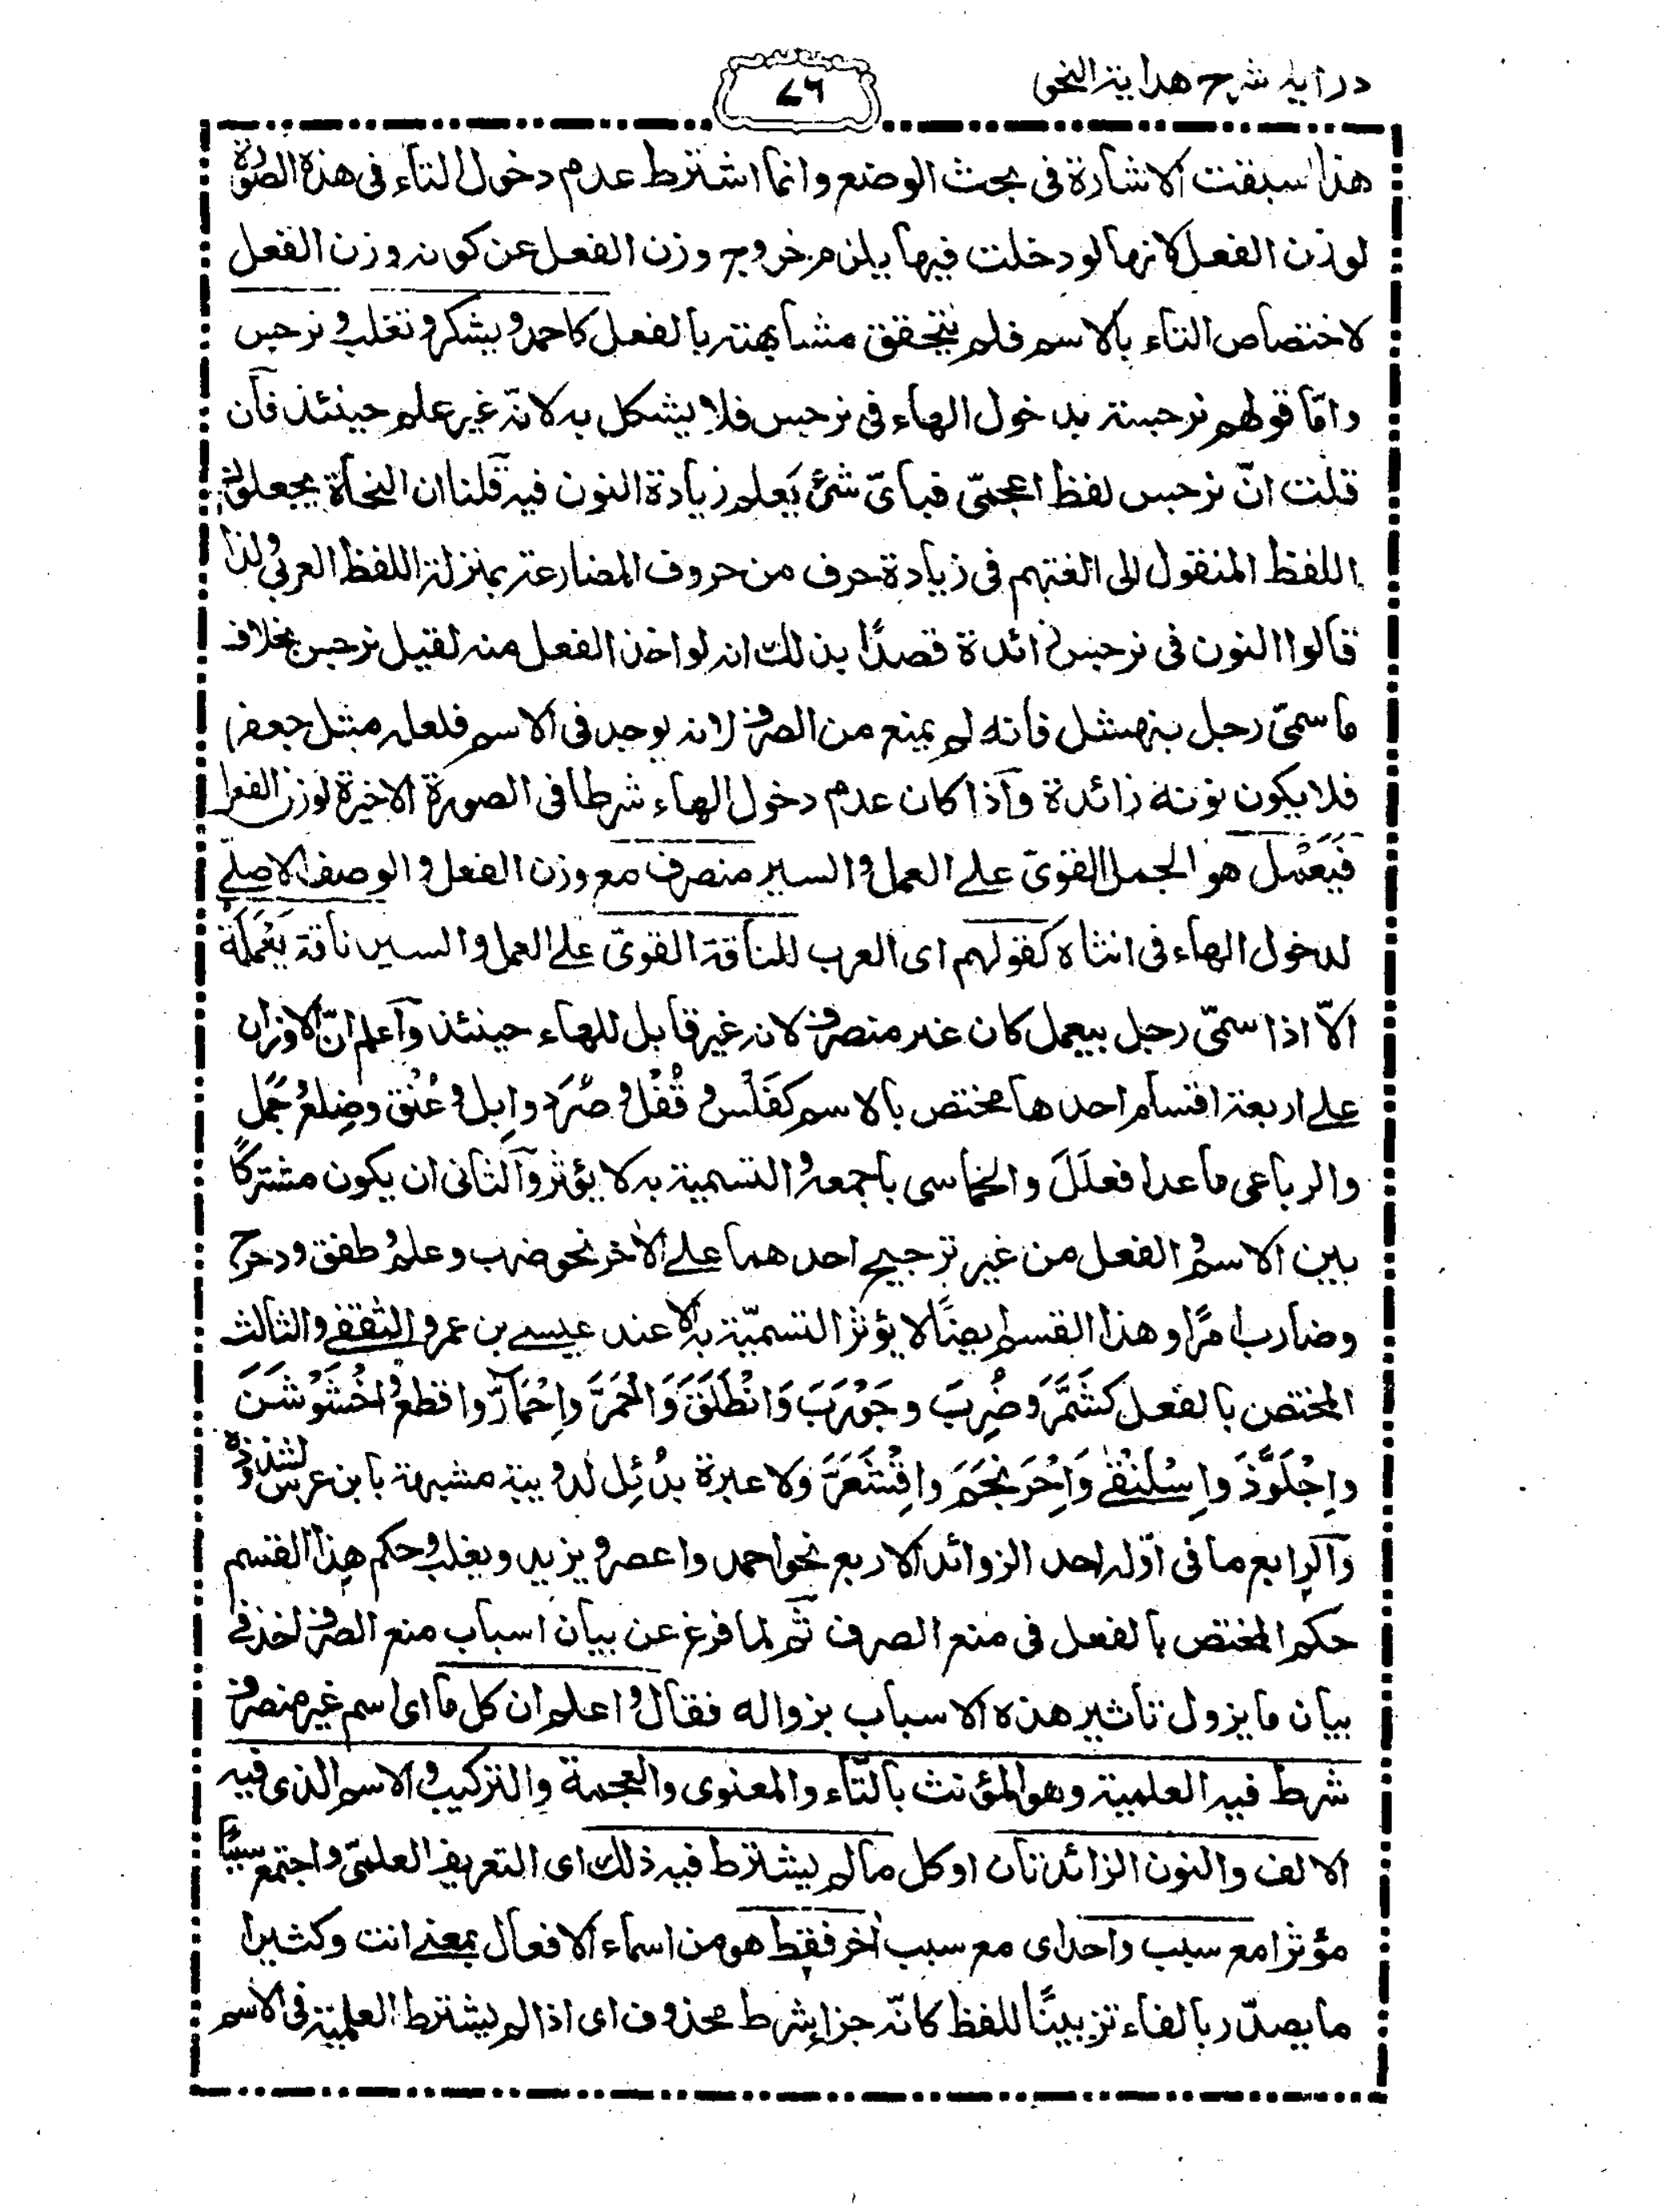 درایه شرح هدایة النحو
٧٦
هذا سبقت الاشارة فی بحث الوضع وانما اشترط عدم دخول التاء فی هذه الصورة
لوزن الفعل لانها لو دخلت فیها یلزم خروج وزن الفعل عن کونه وزن الفعل
لاختصاص التاء بالاسم فلم یتحقق مشابهته بالفعل کاحمد و یشکر و تغلب و نرجس
وامّا قولهم نرجسة بدخول الهاء فی نرجس فلا یشکل به لانّه غیر علم حینئذ فآن
قلت انّ نرجس لفظ اعجمیّ فبایّ شیٔ یَعلم زیادة النون فیه قلنا ان النحاة یجعلون
اللفظ المنقول الی الغتهم فی زیادة حرف من حروف المضارعة بمنزلة اللفظ العربی ولذا
قالوا النون فی نرجس زائدة قصدًا بذلك انه لو اخذ الفعل منه لقیل نرجس بخلاف
ما سمّی رجل بنهشل فانه لم یمنع من الصرف لانه یوجد فی الاسم فلعله مثل جعفر
فلا یکون نونه زائدة وآذا کان عدم دخول الهاء شرطا فی الصورة الاخیرة لوزن الفعل
فَیَعْمَل هو الجمل القویّ علے العمل و السیر منصرف مع وزن الفعل و الوصف الاصلے
لدخول الهاء فی انثاه کقولهم ای العرب للناقة القویّ علے العمل والسیر ناقة یَعْمَلَةٌ
الاّ اذا سمّی رجل بیعمل کان غیر منصرف لانه غیر قابل للهاء حینئذ وآعلم انّ الاوزان
علے اربعة اقسام احدها مختص بالاسم کفَلْس و قُفْل و صُرَد وابِل و عُنُق وضِلع و جَمَل
والرباعی ما عدا فعلَلَ والخماسی باجمعه و التسمیة به لا یؤثر وآلثانی ان یکون مشترکًا
بین الاسم و الفعل من غیر ترجیح احدهما علے الآخر نحو ضرب وعلم و طفق ودحرج
وضارب امرًا وهذا القسم ایضًا لا یؤثر التسمیّة به الا عند عیسے بن عمرو الثقفے والثالث
المختص بالفعل کشَمَّرَ وضُرِبَ وجَوْرَبَ وَانْطَلَقَ وَاحْمَرَّ واِحْمَارَّ واقطع و اخْشَوْشَنَ
واِجْلَوَّذَ واِسْلَنْقٰے وَاِحْرَنْجَمَ واِقْشَعَرَّ ولا عبرة بدُئِل لدویبة مشبهة بابن عرس لشذوذه
وآلرابع ما فی اوّله احد الزوائد الاربع نحو احمد واعصر و یزید ویغلب و حکم هذا القسم
حکم المختص بالفعل فی منع الصرف ثم لما فرغ عن بیان اسباب منع الصرف اخذ فے
بیان ما یزول تاثیر هذه الاسباب بزواله فقال و اعلم ان کل ما ای اسم غیر منصرف
شرط فیه العلمیة وهو المؤنث بالتّاء والمعنوی والعجمة والترکیب و الاسم الذی فیه
الالف والنون الزائدتان او کل ما لم یشترط فیه ذلك ای التعریف العلمیّ واجتمع سببًا
مؤثرا مع سبب واحد ای مع سبب اٰخر فقط هو من اسماء الافعال بمعنے انت وکثیرا
ما یصدّر بالفاء تزیینًا للفظ کانّه جزاء شرط محذوف ای اذا لم یشترط العلمیّة فی الاسم